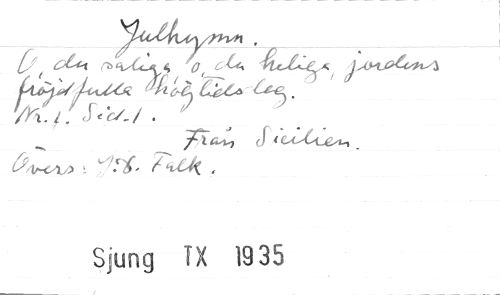 Julhymn.
O, du saliga, o, du heliga, jordens
fröjdfulla högtidsdag.
Nr. 1. Sid. 1.
Från Sicilien.
Övers. J. D. Falk.
Sjung TX 1935